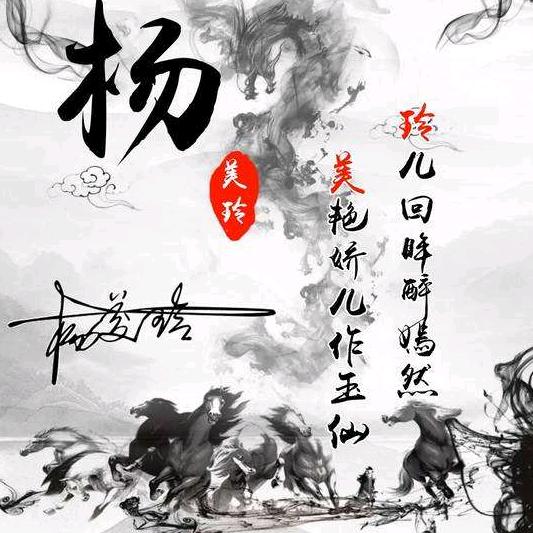 杨
美玲
美艳娇儿作玉仙
玲儿回眸醉嫣然
杨美玲